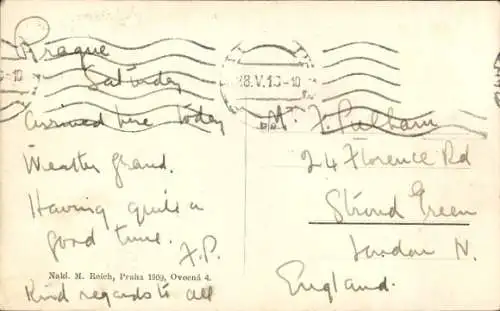 Prague
Saturday
arrived here today
Weather grand.
Having quite a
good time.
F.P.
Nakl. M. Reich, Praha 1909, Ovocná 4.
Kind regards to all
28.V.13-10
Mr. F. Pulham
24 Florence Rd
Stroud Green
London N.
England.